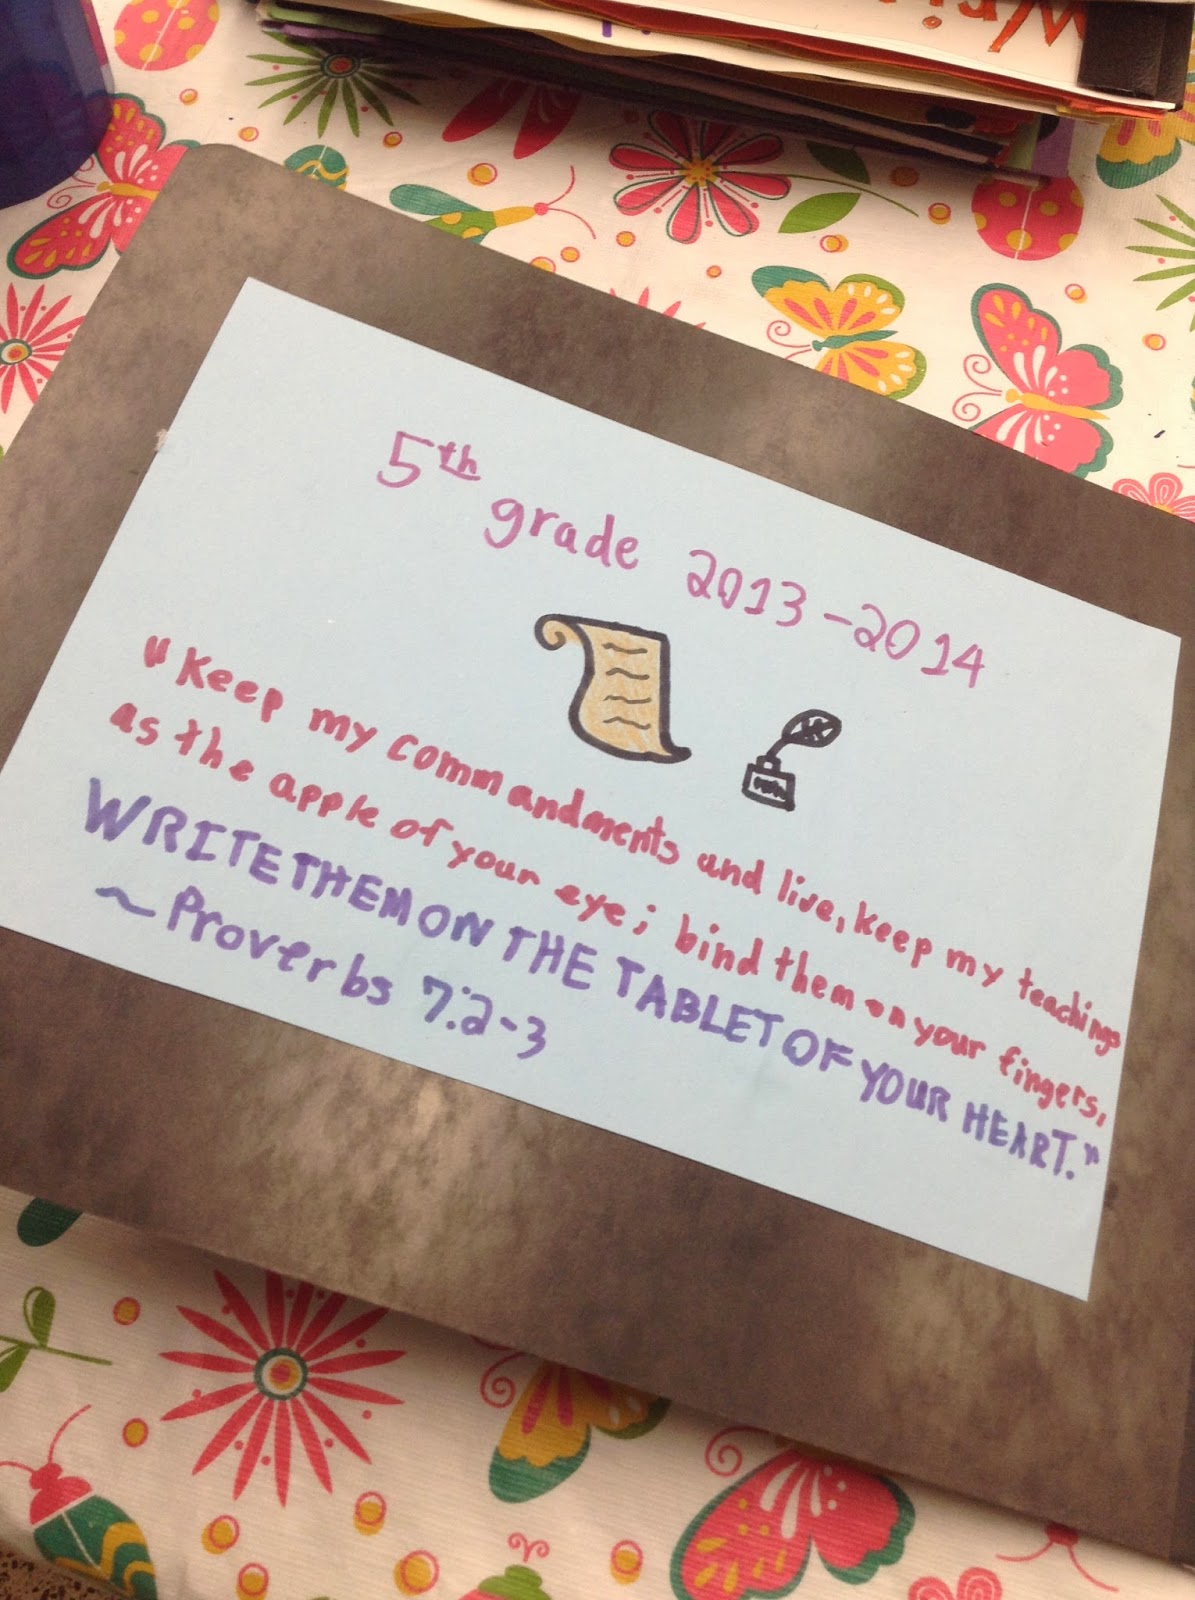 Writi
5th grade 2013-2014
"Keep my commandments and live, keep my teachings
as the apple of your eye; bind them on your fingers,
WRITE THEM ON THE TABLET OF YOUR HEART."
~Proverbs 7:2-3